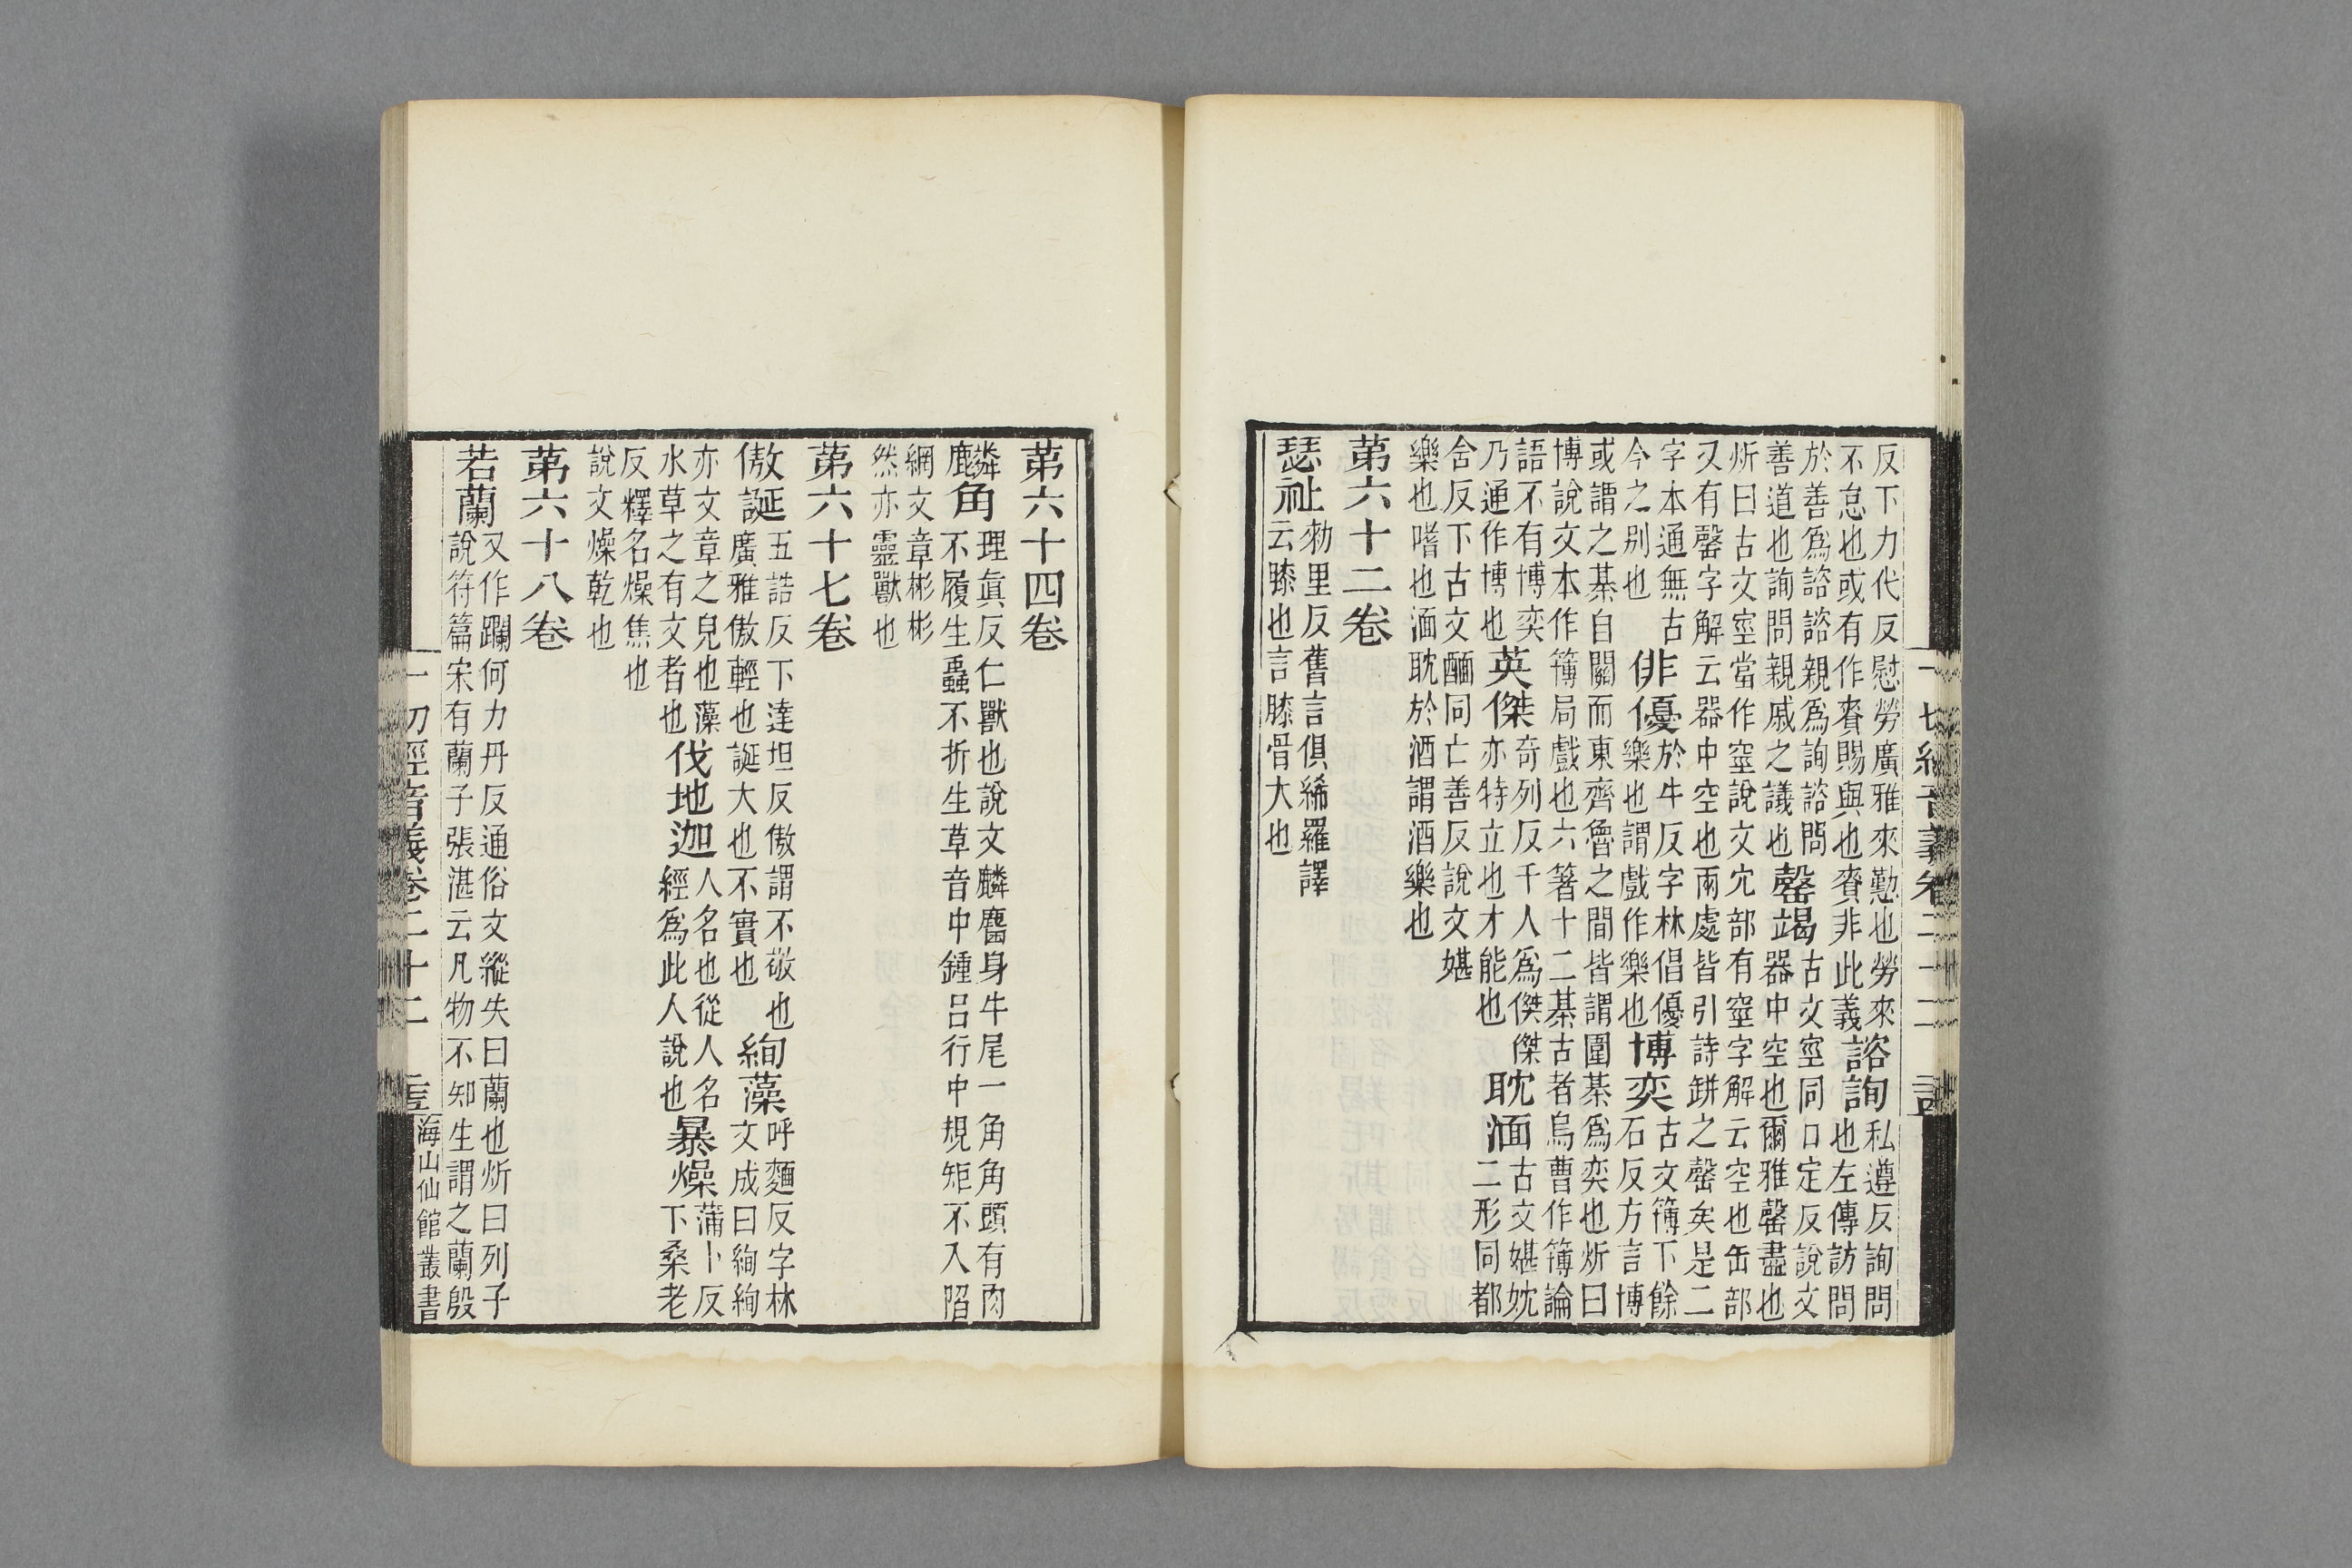 反下力代反慰勞廣雅來勤也勞來
不怠也或有作賚賜與也賚非此義
諮詢
私遵反詢問
也左傳訪問
於善爲諮諮親爲詢諮問
善道也詢問親戚之議也
罄竭
古文同口定反說文
器中空也爾雅罄盡也
炘曰古文當作說文穴部有字解云空也缶部
又有罄字解云器中空也兩處皆引詩缾之罄矣是二
字本通無古
今之别也
俳優
於牛反字林倡優
樂也謂戲作樂也
博奕
古文簙下餘
石反方言博
或謂之棊自關而東齊魯之間皆謂圍棊爲奕也炘曰
博說文本作簙局戲也六箸十二棊古者烏曹作簙論
語不有博奕
乃通作博也
英傑
奇列反千人爲傑傑
亦特立也才能也
耽湎
古文媅妉
二形同都
舍反下古文同亡善反說文媅
樂也嗜也湎耽於酒謂酒樂也
第六十二卷
瑟祉
勑里反舊言俱絺羅譯
云膝也言膝骨大也
第六十四卷
麟角
理眞反仁獸也說文麟麕身牛尾一角角頭有肉
不履生蟲不折生草音中鍾呂行中規矩不入陷
網文章彬彬
然亦靈獸也
第六十七卷
傲誕
五誥反下達坦反傲謂不敬也
廣雅傲輕也誕大也不實也
絢藻
呼麵反字林
文成曰絢絢
亦文章之皃也藻
水草之有文者也
伐地迦
人名也從人名
經爲此人說也
暴燥
蒲卜反
下桑老
反釋名燥焦也
說文燥乾也
第六十八卷
若蘭
又作躝何力丹反通俗文縱失曰蘭也炘曰列子
說符篇宋有蘭子張湛云凡物不知生謂之蘭殷
一切經音義卷二十二
海山仙館叢書